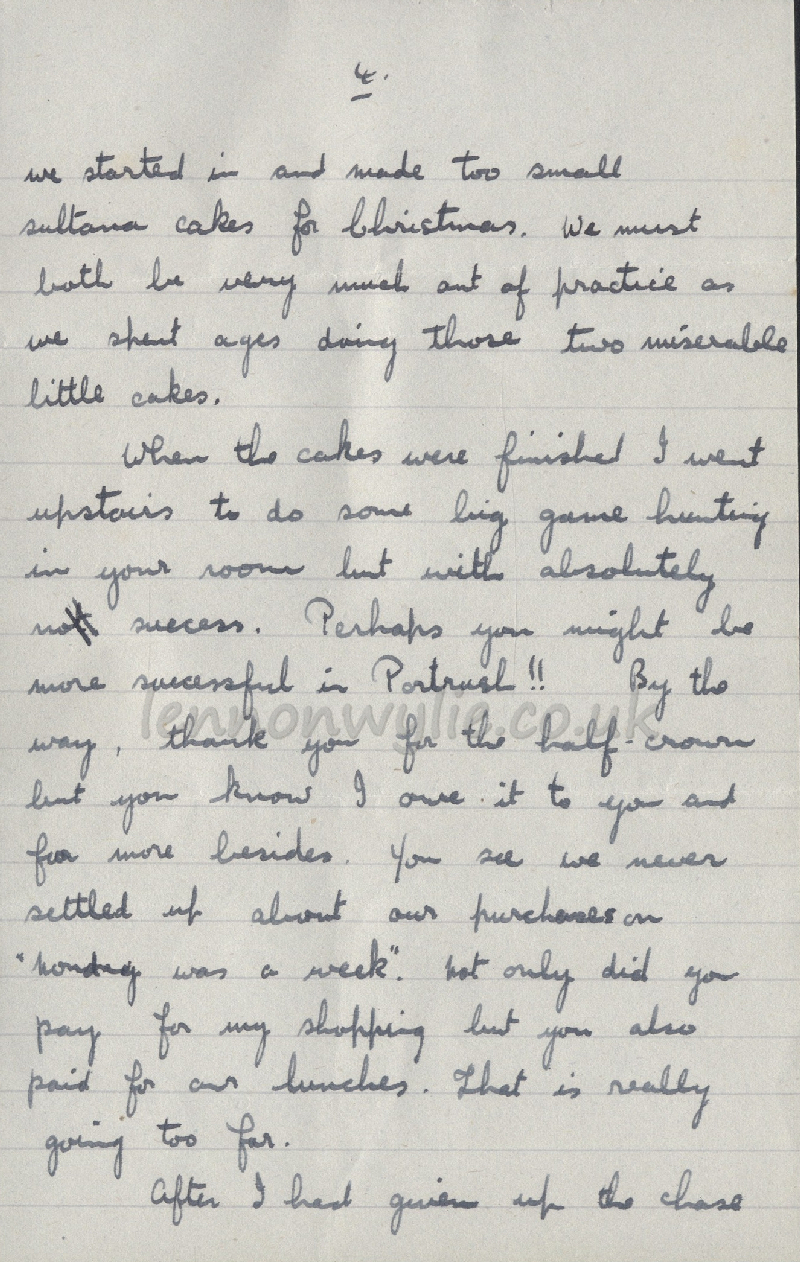 4.
we started in and made too small
sultana cakes for Christmas. We must
both be very much out of practice as
we spent ages doing those two miserable
little cakes.
When the cakes were finished I went
upstairs to do some big game hunting
in your room but with absolutely
no success. Perhaps you might be
more successful in Portrush!! By the
lennonwylie.co.uk
way, thank you for the half-crown
but you know I owe it to you and
far more besides. You see we never
settled up about our purchases on
"Monday was a week". Not only did you
pay for my shopping but you also
paid for our lunches. That is really
going too far.
After I had given up the chase